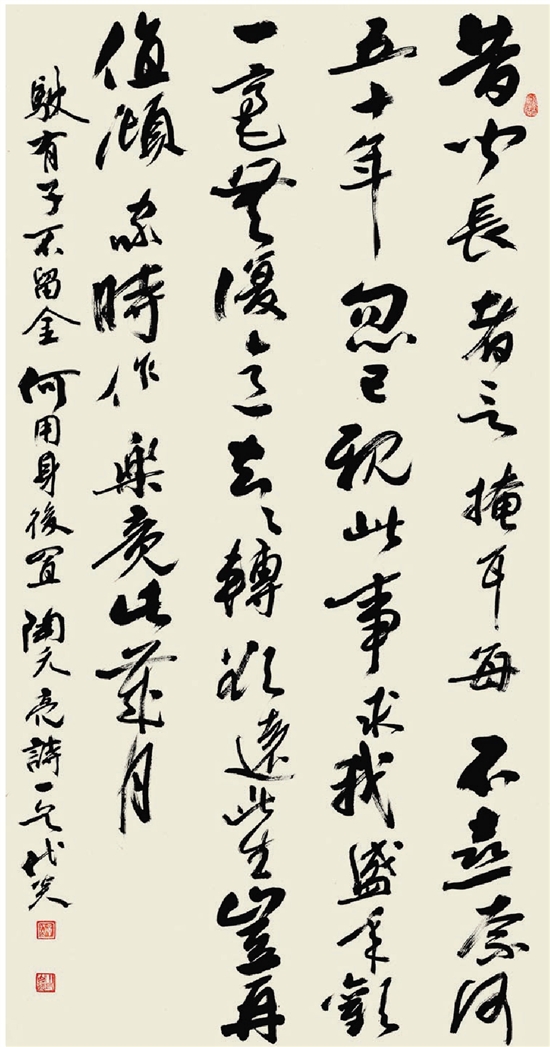 昔聞長者言掩耳每不喜奈何
五十年忽已親此事求我盛年歡
一毫無復意去去轉欲遠此生豈再
值傾家時作樂竟此歲月
駛有子不留金何用身後置陶元亮詩一首